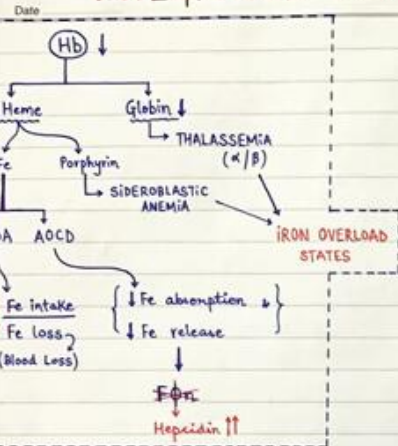 Date
Hb ↓
Heme
Globin ↓
THALASSEMIA
(α/β)
Fe
Porphyrin
SiDEROBLASTIC
ANEMIA
iRON OVERLOAD
STATES
DA
AOCD
Fe intake
Fe loss
(Blood Loss)
↓ Fe absorption &
↓ Fe release
Hepcidin ↑↑